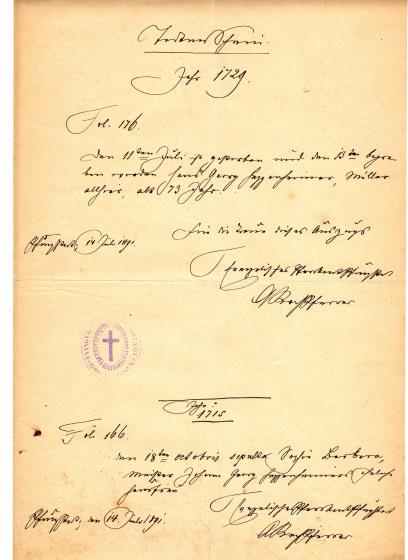 Todten Schein.
Jahr 1729.
Fol. 176.
Den 11ten Juli ist gestorben und den 13ten begra-
ben worden Hans Georg Heppenheimer, Müller
allhier, alt 73 Jahr.
Für die treue dieses Auszugs
14 Juli 1891.
Evangelisches Pfarramt
Jahr:
1715
Fol. 166.
den 18ten octobris sepulta Barbara,
Meister Johann Georg Heppenheimers
hausfrau
den 14. Juli 1891.
Evangelisches Pfarramt